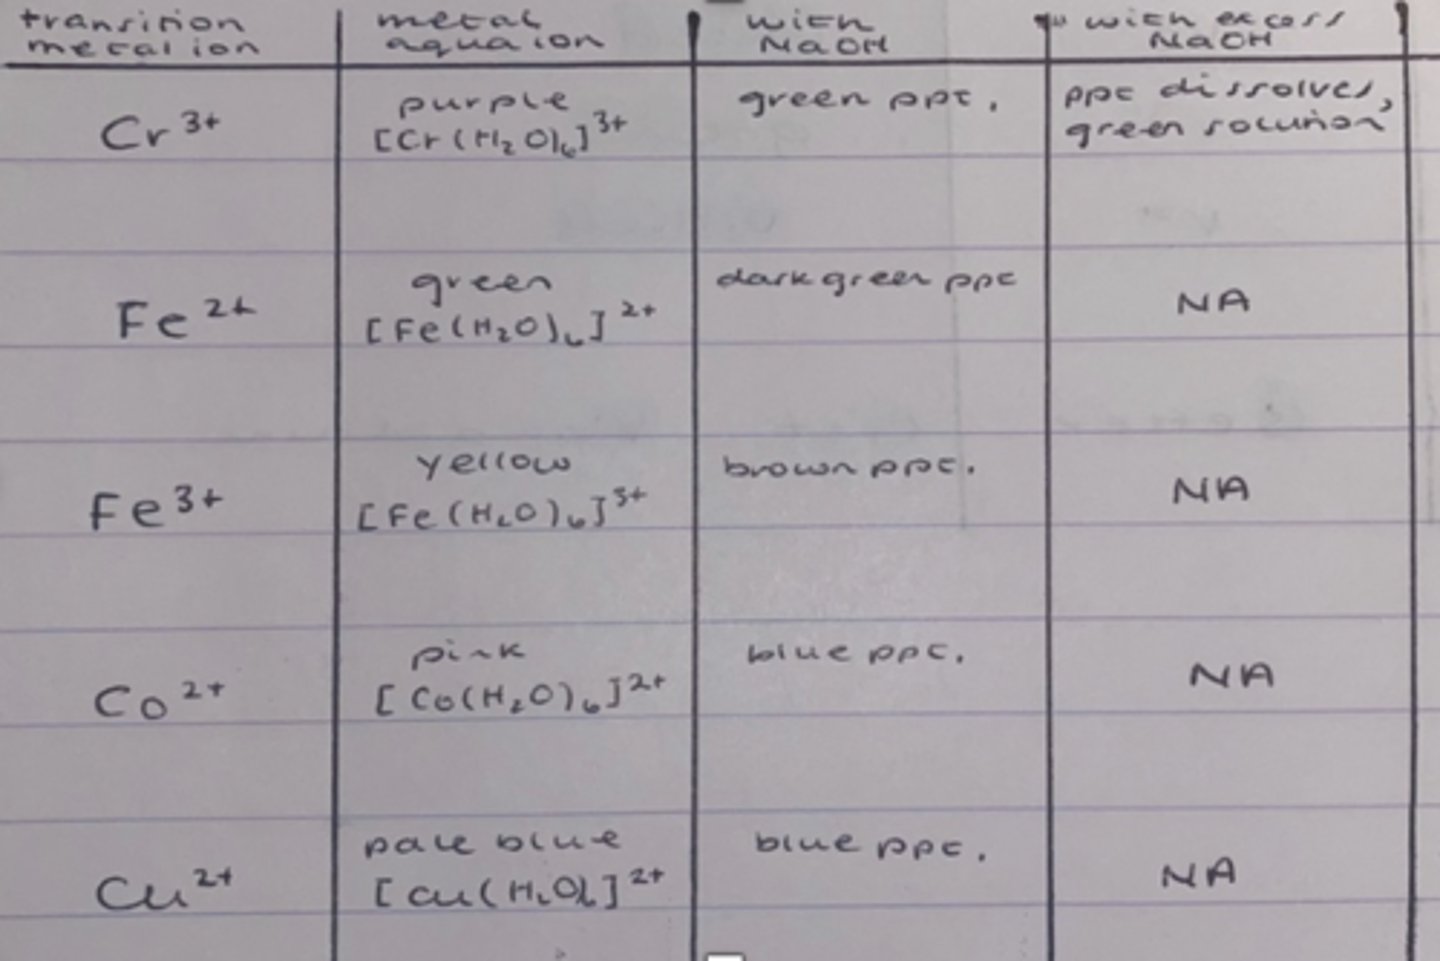 transition metal ion
metal aqua ion
with NaOH
with excess NaOH
Cr³⁺
purple
[Cr(H₂O)₆]³⁺
green ppt.
ppt dissolves,
green solution
Fe²⁺
green
[Fe(H₂O)₆]²⁺
dark green ppt
NA
Fe³⁺
yellow
[Fe(H₂O)₆]³⁺
brown ppt.
NA
Co²⁺
pink
[Co(H₂O)₆]²⁺
blue ppt.
NA
Cu²⁺
pale blue
[Cu(H₂O)₆]²⁺
blue ppt.
NA